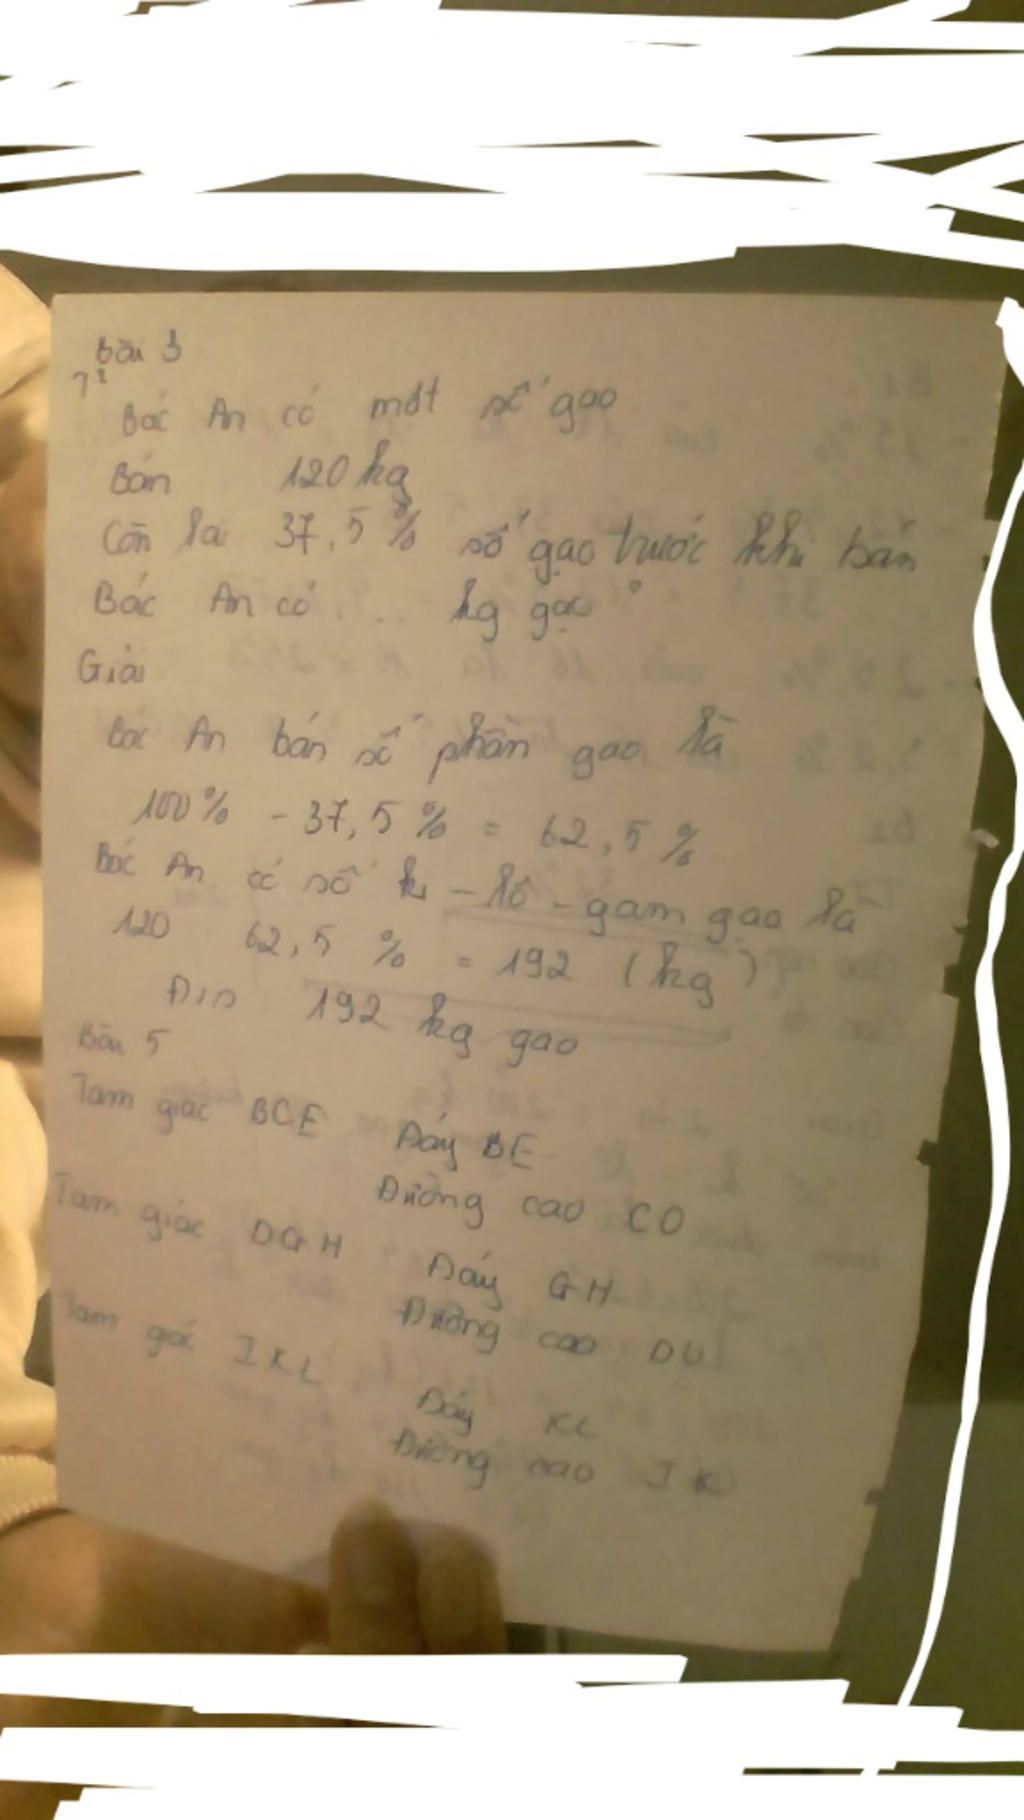 Bài 3
T²
Bác An có một số gạo
Bán 120 kg
Còn lại 37,5 % số gạo trước khi bán
Bác An có ... kg gạo ?
Giải
Bác An bán số phần gạo là
100% - 37,5 % = 62,5 %
Bác An có số ki - lô - gam gạo là
120 62,5 % = 192 (kg)
192 kg gạo
Bài 5
Tam giác BCE Đáy BE
Đường cao CO
Tam giác DGH Đáy GH
Đường cao DU
Tam giác IKL
Đáy KL
Đường cao IK